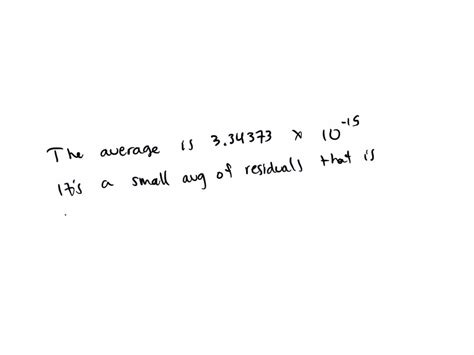 The average is 3.34373 x 10^-15
It's a small avg of residuals that is